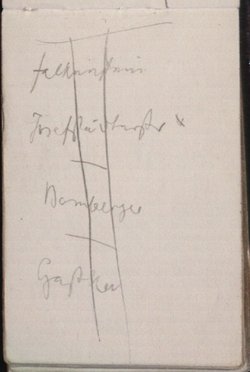 Falkenstein
Josefstädterstr x
Bamberger